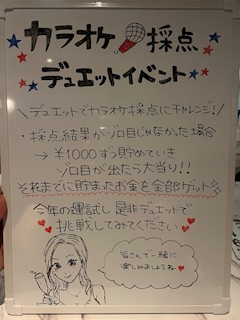 カラオケ 採点
デュエットイベント
\デュエットでカラオケ採点にチャレンジ!/
・採点結果がゾロ目じゃなかった場合
→ ¥1000ずつ貯めていき
ゾロ目が出たら大当り!!
それまでに貯まったお金を全部ゲット
今年の運試し 是非デュエットで
挑戦してみてください
皆さんで一緒に
楽しみましょうね